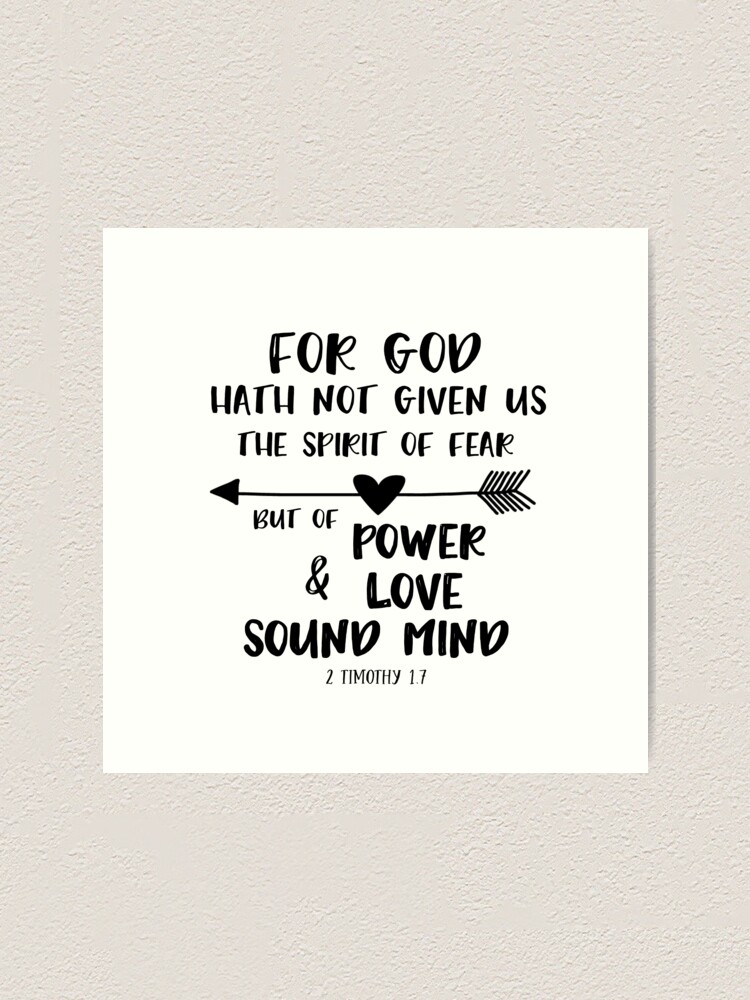 FOR GOD
HATH NOT GIVEN US
THE SPIRIT OF FEAR
BUT OF POWER
& LOVE
SOUND MIND
2 TIMOTHY 1.7